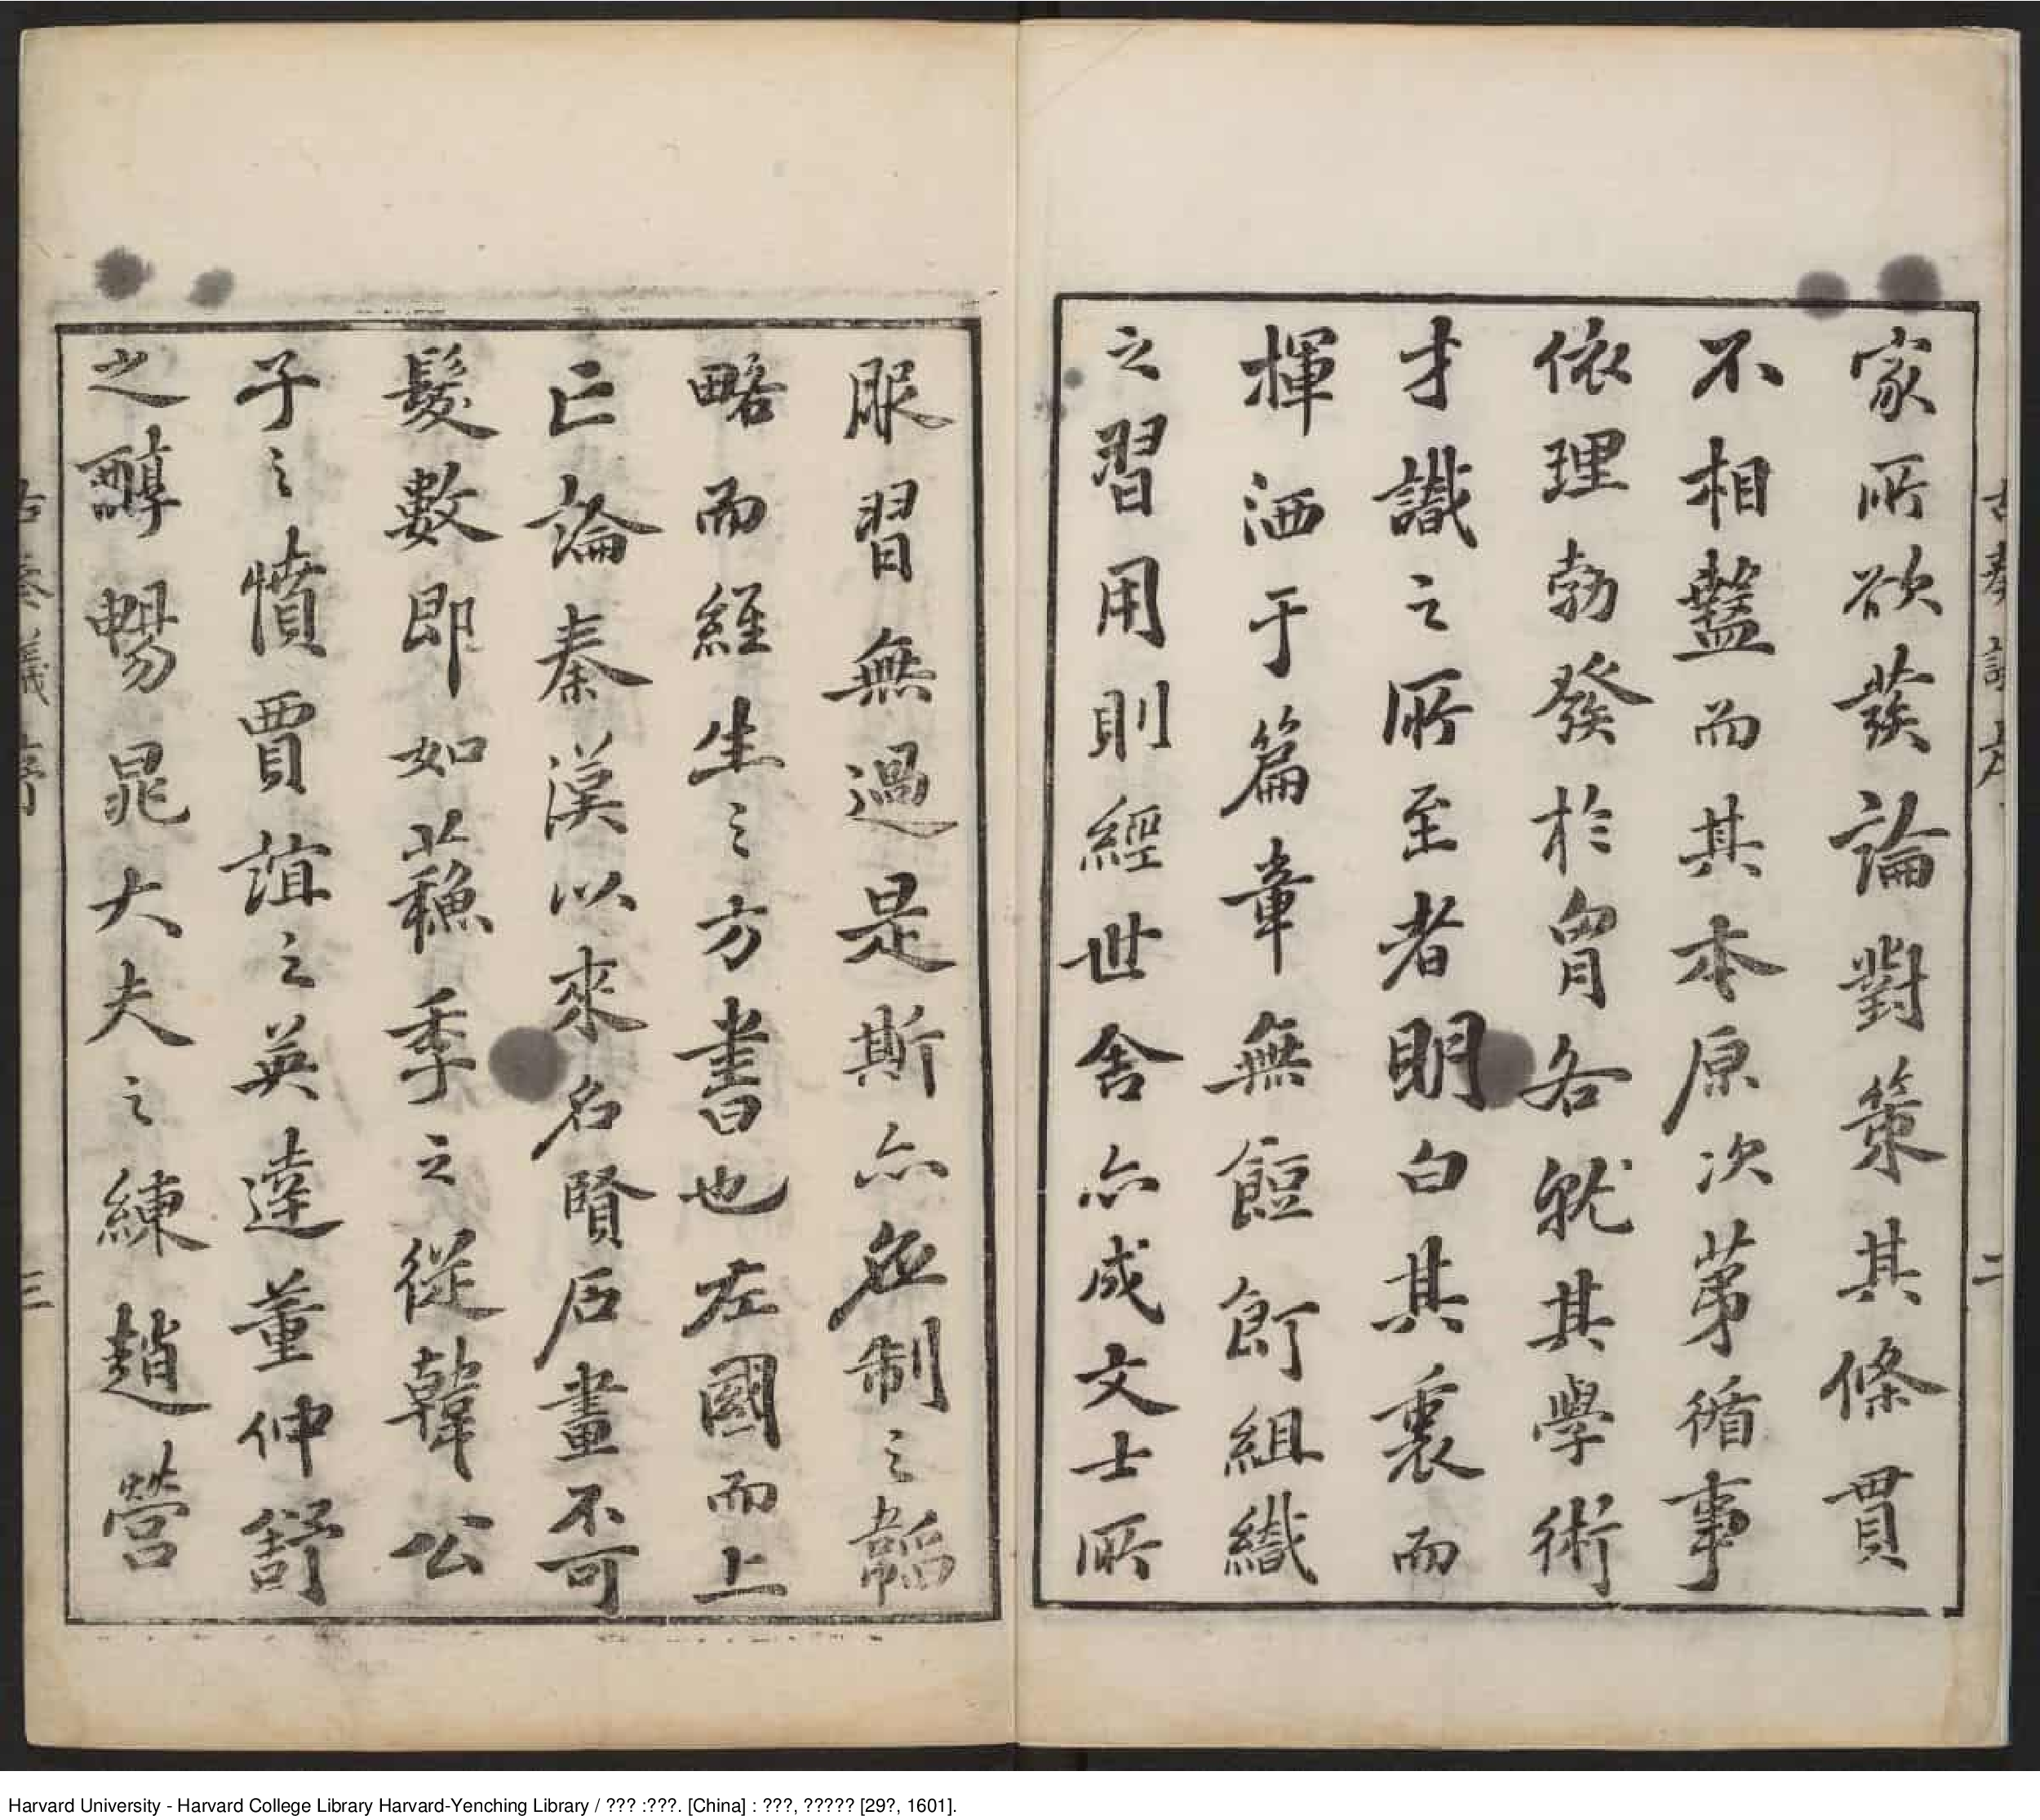 古奏議序
二
家所欲發論對策其條貫
不相盭而其本原次第循事
依理勃發於胷各就其學術
才識之所至者明白其裏而
揮洒于篇章無餖飣組織
之習用則經世舍亦成文士所
服習無過是斯亦
制之韜
略而經生之方書也左國而上
亡論秦漢以來名賢石畫不可
髮數即如蘓季之從韓公
子之憤賈誼之英達董仲舒
之醇暢晁大夫之練趙營
古奏議序
三
Harvard University - Harvard College Library Harvard-Yenching Library / ??? :???. [China] : ???, ????? [29?, 1601].